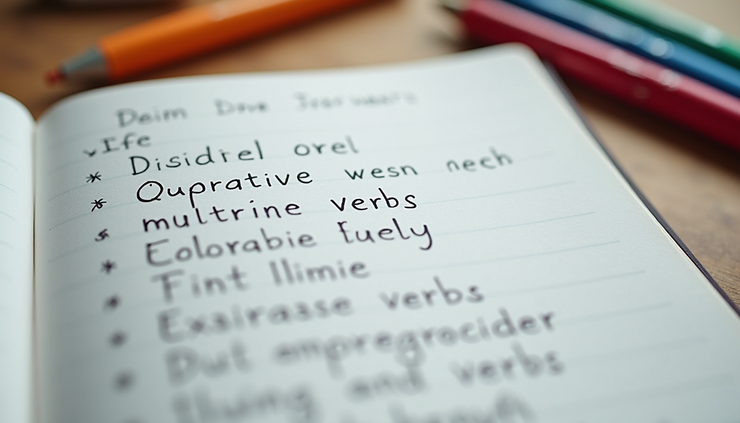 Ife
* Disidrel orel
* Quprative wesn nech
multrine verbs
* Eolorabie fuely
* Fint llimie
* Exsirasse verbs
* Dut empregrocider
and verbs